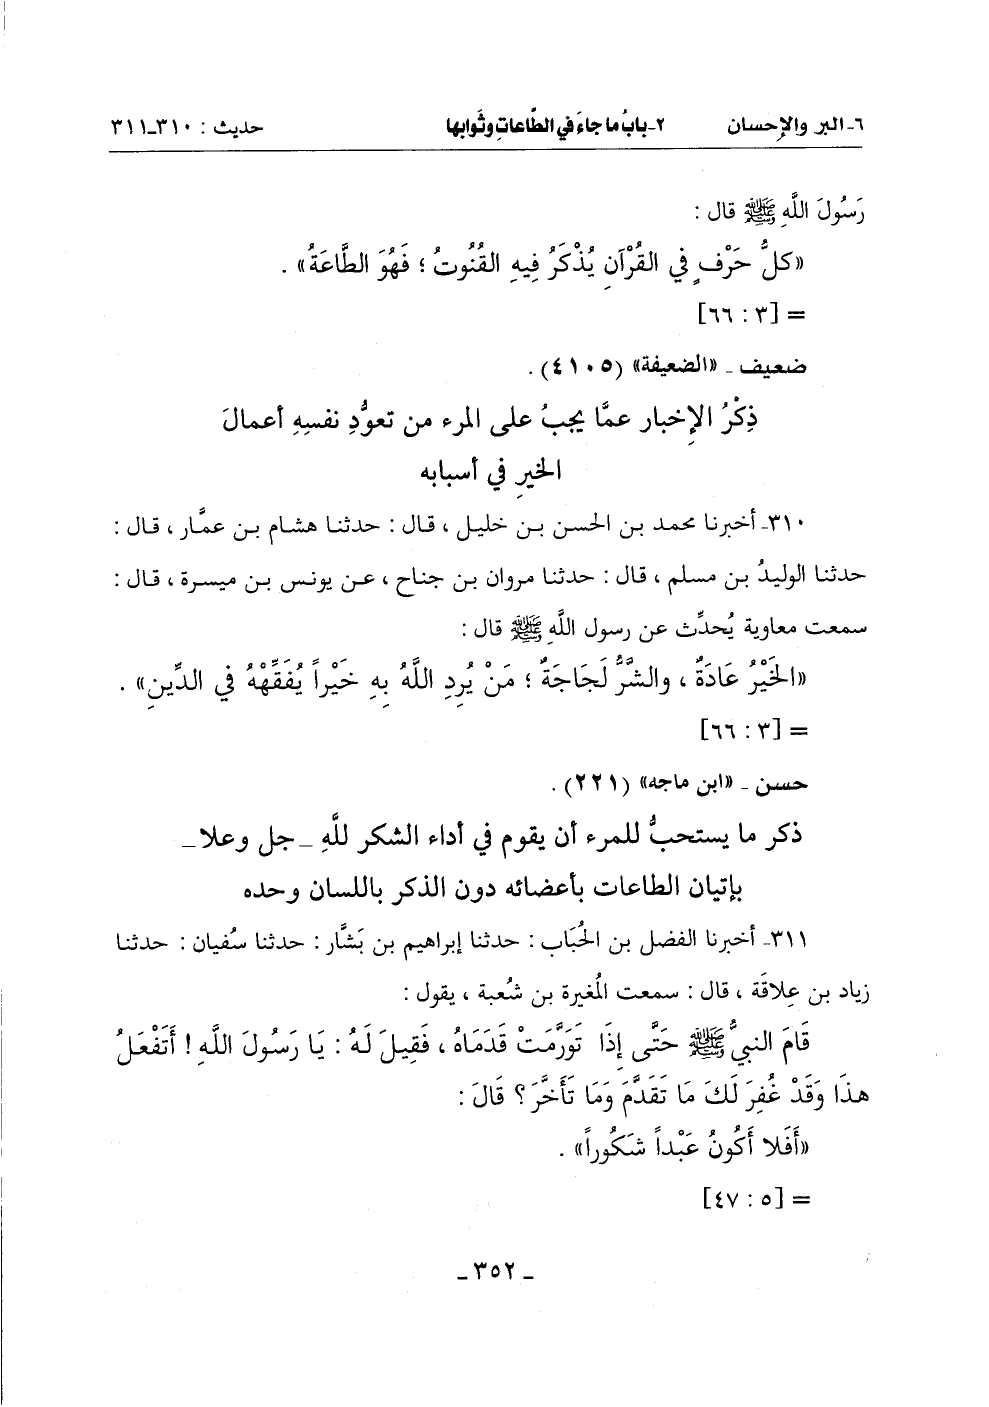 ٦ـ البر والإحسان ٢ـ بابُ ما جاءَ في الطَّاعاتِ وثَوابها حديث : ٣١٠ـ٣١١
رَسُولَ اللَّهِ ﷺ قال :
«كلُّ حَرْفٍ في القُرْآنِ يُذْكَرُ فِيهِ القُنُوتُ ؛ فَهُوَ الطَّاعَةُ» .
= [٣ : ٦٦]
ضعيف ـ «الضعيفة» (٤١٠٥) .
ذِكْرُ الإِخبار عمَّا يجبُ على المرء من تعوُّدِ نفسِهِ أعمالَ
الخيرِ في أسبابه
٣١٠ـ أخبرنا محمد بن الحسن بن خليل ، قال : حدثنا هشام بن عمَّار ، قال :
حدثنا الوليدُ بن مسلم ، قال : حدثنا مروان بن جناح ، عن يونس بن ميسرة ، قال :
سمعت معاوية يُحدِّث عن رسول اللَّهِ ﷺ قال :
«الخَيْرُ عَادَةٌ ، والشَّرُّ لَجَاجَةٌ ؛ مَنْ يُرِدِ اللَّهُ بِهِ خَيْراً يُفَقِّهْهُ في الدِّينِ» .
= [٣ : ٦٦]
حسن ـ «ابن ماجه» (٢٢١) .
ذكر ما يستحبُّ للمرء أن يقوم في أداء الشكر للَّهِ ـ جل وعلا ـ
بإتيان الطاعات بأعضائه دون الذكر باللسان وحده
٣١١ـ أخبرنا الفضل بن الحُبَاب : حدثنا إبراهيم بن بَشَّار : حدثنا سُفيان : حدثنا
زياد بن عِلاقَة ، قال : سمعت المُغيرة بن شُعبة ، يقول :
قَامَ النبيُّ ﷺ حَتَّى إِذَا تَوَرَّمَتْ قَدَمَاهُ ، فَقِيلَ لَهُ : يَا رَسُولَ اللَّهِ ! أَتَفْعَلُ
هذَا وَقَدْ غُفِرَ لَكَ مَا تَقَدَّمَ وَمَا تَأَخَّرَ ؟ قَالَ :
«أَفَلا أَكُونُ عَبْداً شَكُوراً» .
= [٥ : ٤٧]
ـ ٣٥٢ ـ